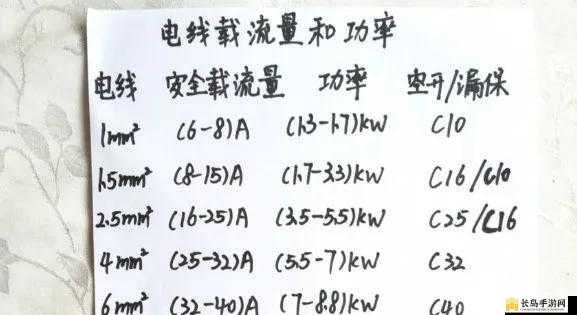 电线载流量和功率
电线 安全载流量 功率 空开/漏保
1mm² (6-8)A (1.3-1.7)kW C10
1.5mm² (8-15)A (1.7-3.3)kW C16/C10
2.5mm² (16-25)A (3.5-5.5)kW C25/C16
4mm² (25-32)A (5.5-7)kW C32
6mm² (32-40)A (7-8.8)kW C40
长岛手游网